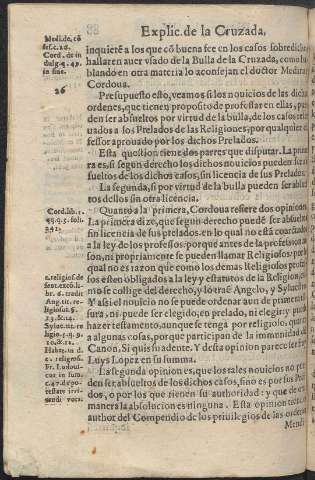 Explic. de la Cruzada.
inquietē a los que cō buena fee en los casos sobredichos
hallaren auer vsado de la Bulla de la Cruzada, como ha
blando en otra materia lo aconsejan el doctor Medina
Cordoua.
Presupuesto esto, veamos si los nouicios de las dichas
ordenes, que tienen proposito de professar en ellas, pue
den ser absueltos por virtud de la bulla, de los casos
uados a los Prelados de las Religiones, por qualquier
fessor aprouado por los dichos Prelados.
Esta question tiene dos partes que disputar. La prime
ra es, si segun derecho los dichos nouicios pueden ser
sueltos de los dichos casos, sin licencia de sus Prelados.
La segunda, si por virtud de la bulla pueden ser absuel
tos dellos sin otra licencia.
Quanto a la primera, Cordoua refiere dos opiniones.
La primera dize, que segun derecho puedē ser absueltos
sin licencia de sus prelados, en lo qual no está coartados
a la ley de los professos, porque antes de la profession
ni propriamente se pueden llamar Religiosos, por
qual no es razon que como los demas Religiosos profes
sos esten obligados a la ley y estatutos de la Religion,
mo se collige del derecho, y lo traē Angelo, y Syluestro
Y assi el nouicio no se puede ordenar aun de primera
sura, ni puede ser elegido, en prelado, ni elegir, y puede
hazer testamento, aunque se tenga por religioso, quanto
a algunas cosas, porque participan de la immunidad
Canon. Si quis suadente. Y desta opinion parece ser
Luys Lopez en su summa.
La segunda opinion es, que los tales nouicios no pue
den ser absueltos de los dichos casos, sino es por sus Prela
dos, o por los que tienen su authoridad: y que de otra
manera la absolucion es ninguna. Esta opinion tiene
author del Compendio de los priuilegios de las ordenes
Mendi
Medi. de cō
fes. c. 20.
Cord. de in
dulg. q. 47.
in fine.
26
Cord. lib. 1.
qq. q. 5. foli.
342.
c. religioso de
sent. excō. li-
br. 6. tradit
Ang. tit. re-
ligiosus. §.
13. & 14.
Sylue. tit. re
ligio. 5. q. 9.
10. & 11.
Habet. in d.
c. religioso.